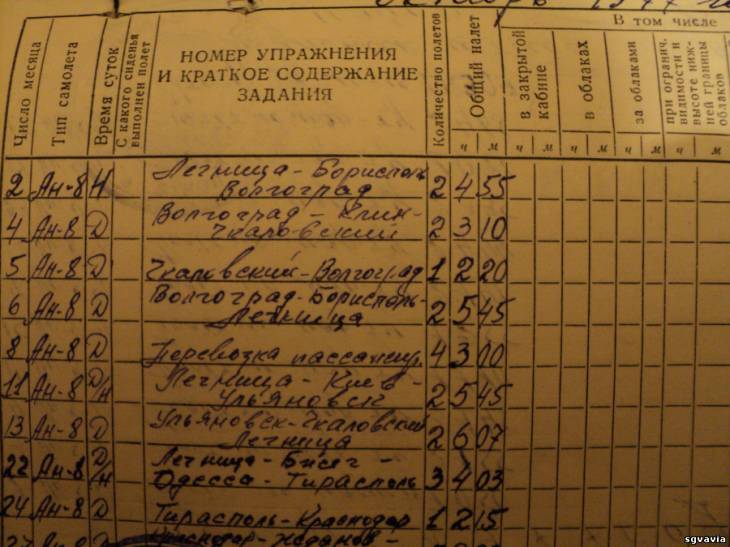 Октябрь 1977 г
Число месяца
Тип самолета
Время суток
С какого сиденья выполнен полет
НОМЕР УПРАЖНЕНИЯ
И КРАТКОЕ СОДЕРЖАНИЕ
ЗАДАНИЯ
Количество полетов
Общий налет
В том числе
в закрытой
кабине
в облаках
за облаками
при огранич.
видимости и
высоте ниж-
ней границы
облаков
ч м ч м ч м ч м ч м
Легница - Борисполь
2 Ан-8 Н Волгоград 2 4 55
Волгоград - Клин-
4 Ан-8 Д Чкаловский 2 3 10
5 Ан-8 Д Чкаловский-Волгоград 1 2 20
Волгоград-Борисполь-
6 Ан-8 Д Легница 2 5 45
8 Ан-8 Д Перевозка пассажир. 4 3 10
Легница - Киев -
11 Ан-8 Д/Н Ульяновск 2 5 45
Ульяновск-Чкаловский
13 Ан-8 Д Легница 2 6 07
Легница - Бжег -
22 Ан-8 Д/Н Одесса - Тирасполь 3 4 03
24 Ан-8 Д Тирасполь-Краснодар 1 2 15
Краснодар-Жданов-
sgvavia